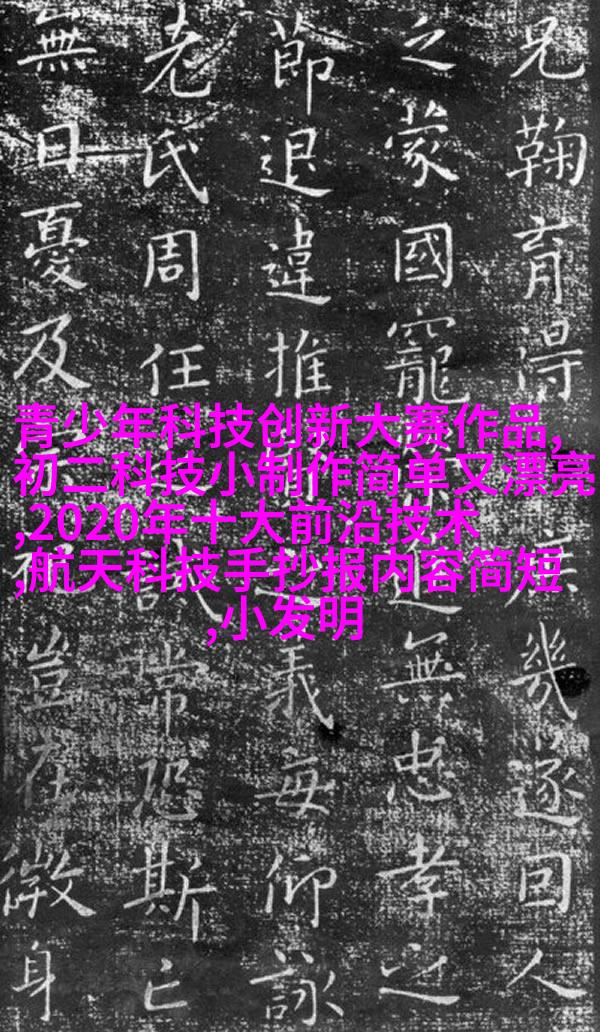 兄鞠育得幾遂回人
之蒙國寵無忠孝之
節退違推義每仰詠
老氏周任常恐斯亡
無日憂及豈在微身
青少年科技创新大赛作品,
初二科技小制作简单又漂亮
,2020年十大前沿技术
,航天科技手抄报内容简短
,小发明